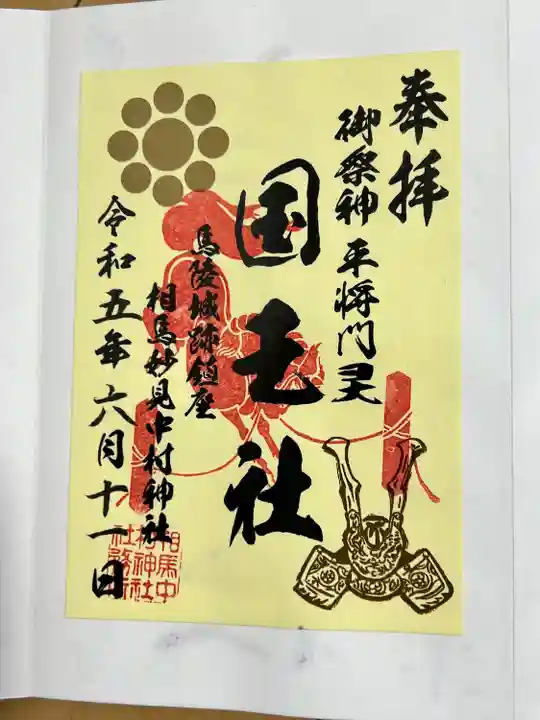 奉拝
御祭神 平将門霊
国王社
馬陵城跡鎮座
相馬妙見中村神社
令和五年六月十一日
相馬中
村神社
社務所